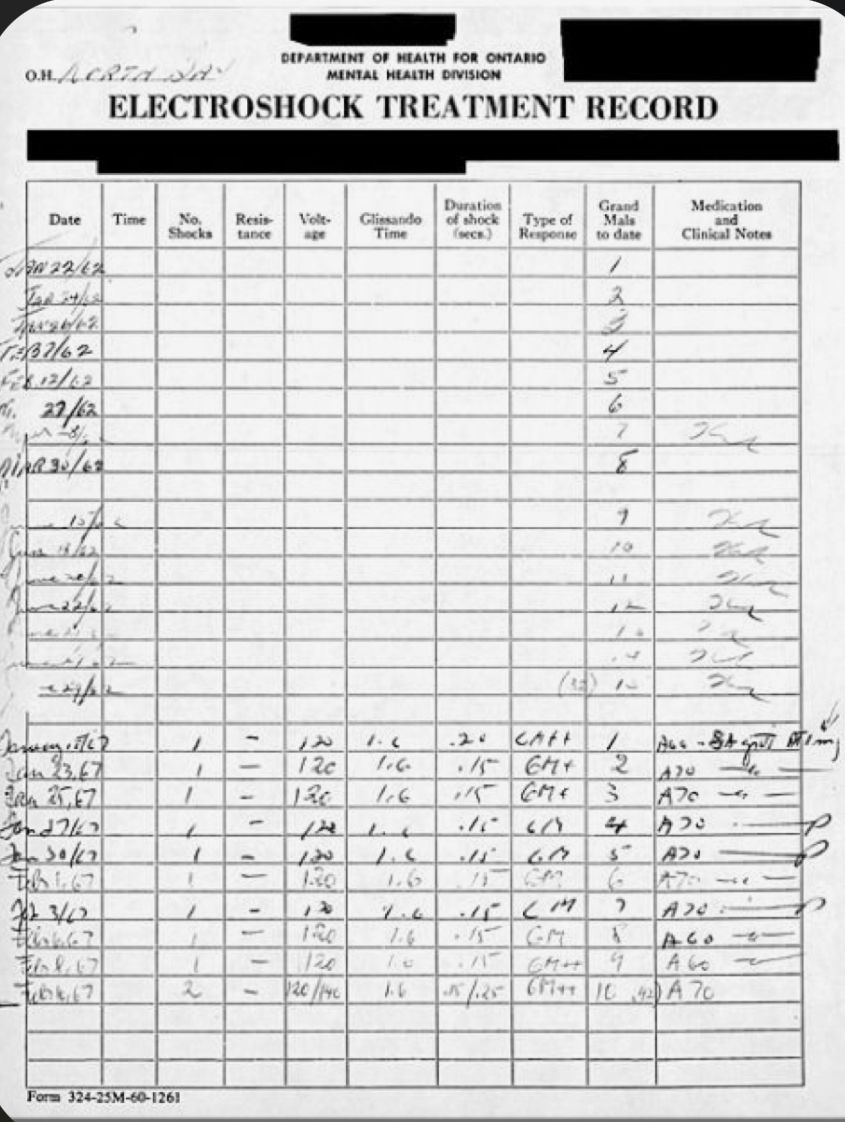 DEPARTMENT OF HEALTH FOR ONTARIO
MENTAL HEALTH DIVISION
O.H. NORTH BAY
ELECTROSHOCK TREATMENT RECORD
Date Time No. Shocks Resis-tance Volt-age Glissando Time Duration of shock (secs.) Type of Response Grand Mals to date Medication and Clinical Notes
JAN 22/62 1
Jan 24/62 2
Jan 26/62 3
FEB 7/62 4
FEB.12/62 5
27/62 6
7
MAR 30/62 8
15/62 9
June 18/62 10
June 20/62 11
June 22/62 12
27/62
January 67 1 - 120 1.6 .20 GM++ 1 A60
Jan 23,67 1 - 120 1.6 .15 GM+ 2 A70
Jan 25,67 1 - 120 1.6 .15 GM+ 3 A70
Jan 27/67 1 - 120 1.6 .15 GM 4 A70
Jan 30/67 1 - 120 1.6 .15 GM 5 A70
Feb 1,67 1 - 120 1.6 .15 GM 6 A70
Feb 3/67 1 - 120 1.6 .15 GM 7 A70
Feb 6,67 1 - 120 1.6 .15 GM 8 A60
Feb 8,67 1 - 120 1.6 .15 GM++ 9 A60
67 2 - 120/140 1.6 .15/.25 GM++ 10 A70
Form 324-25M-60-1261